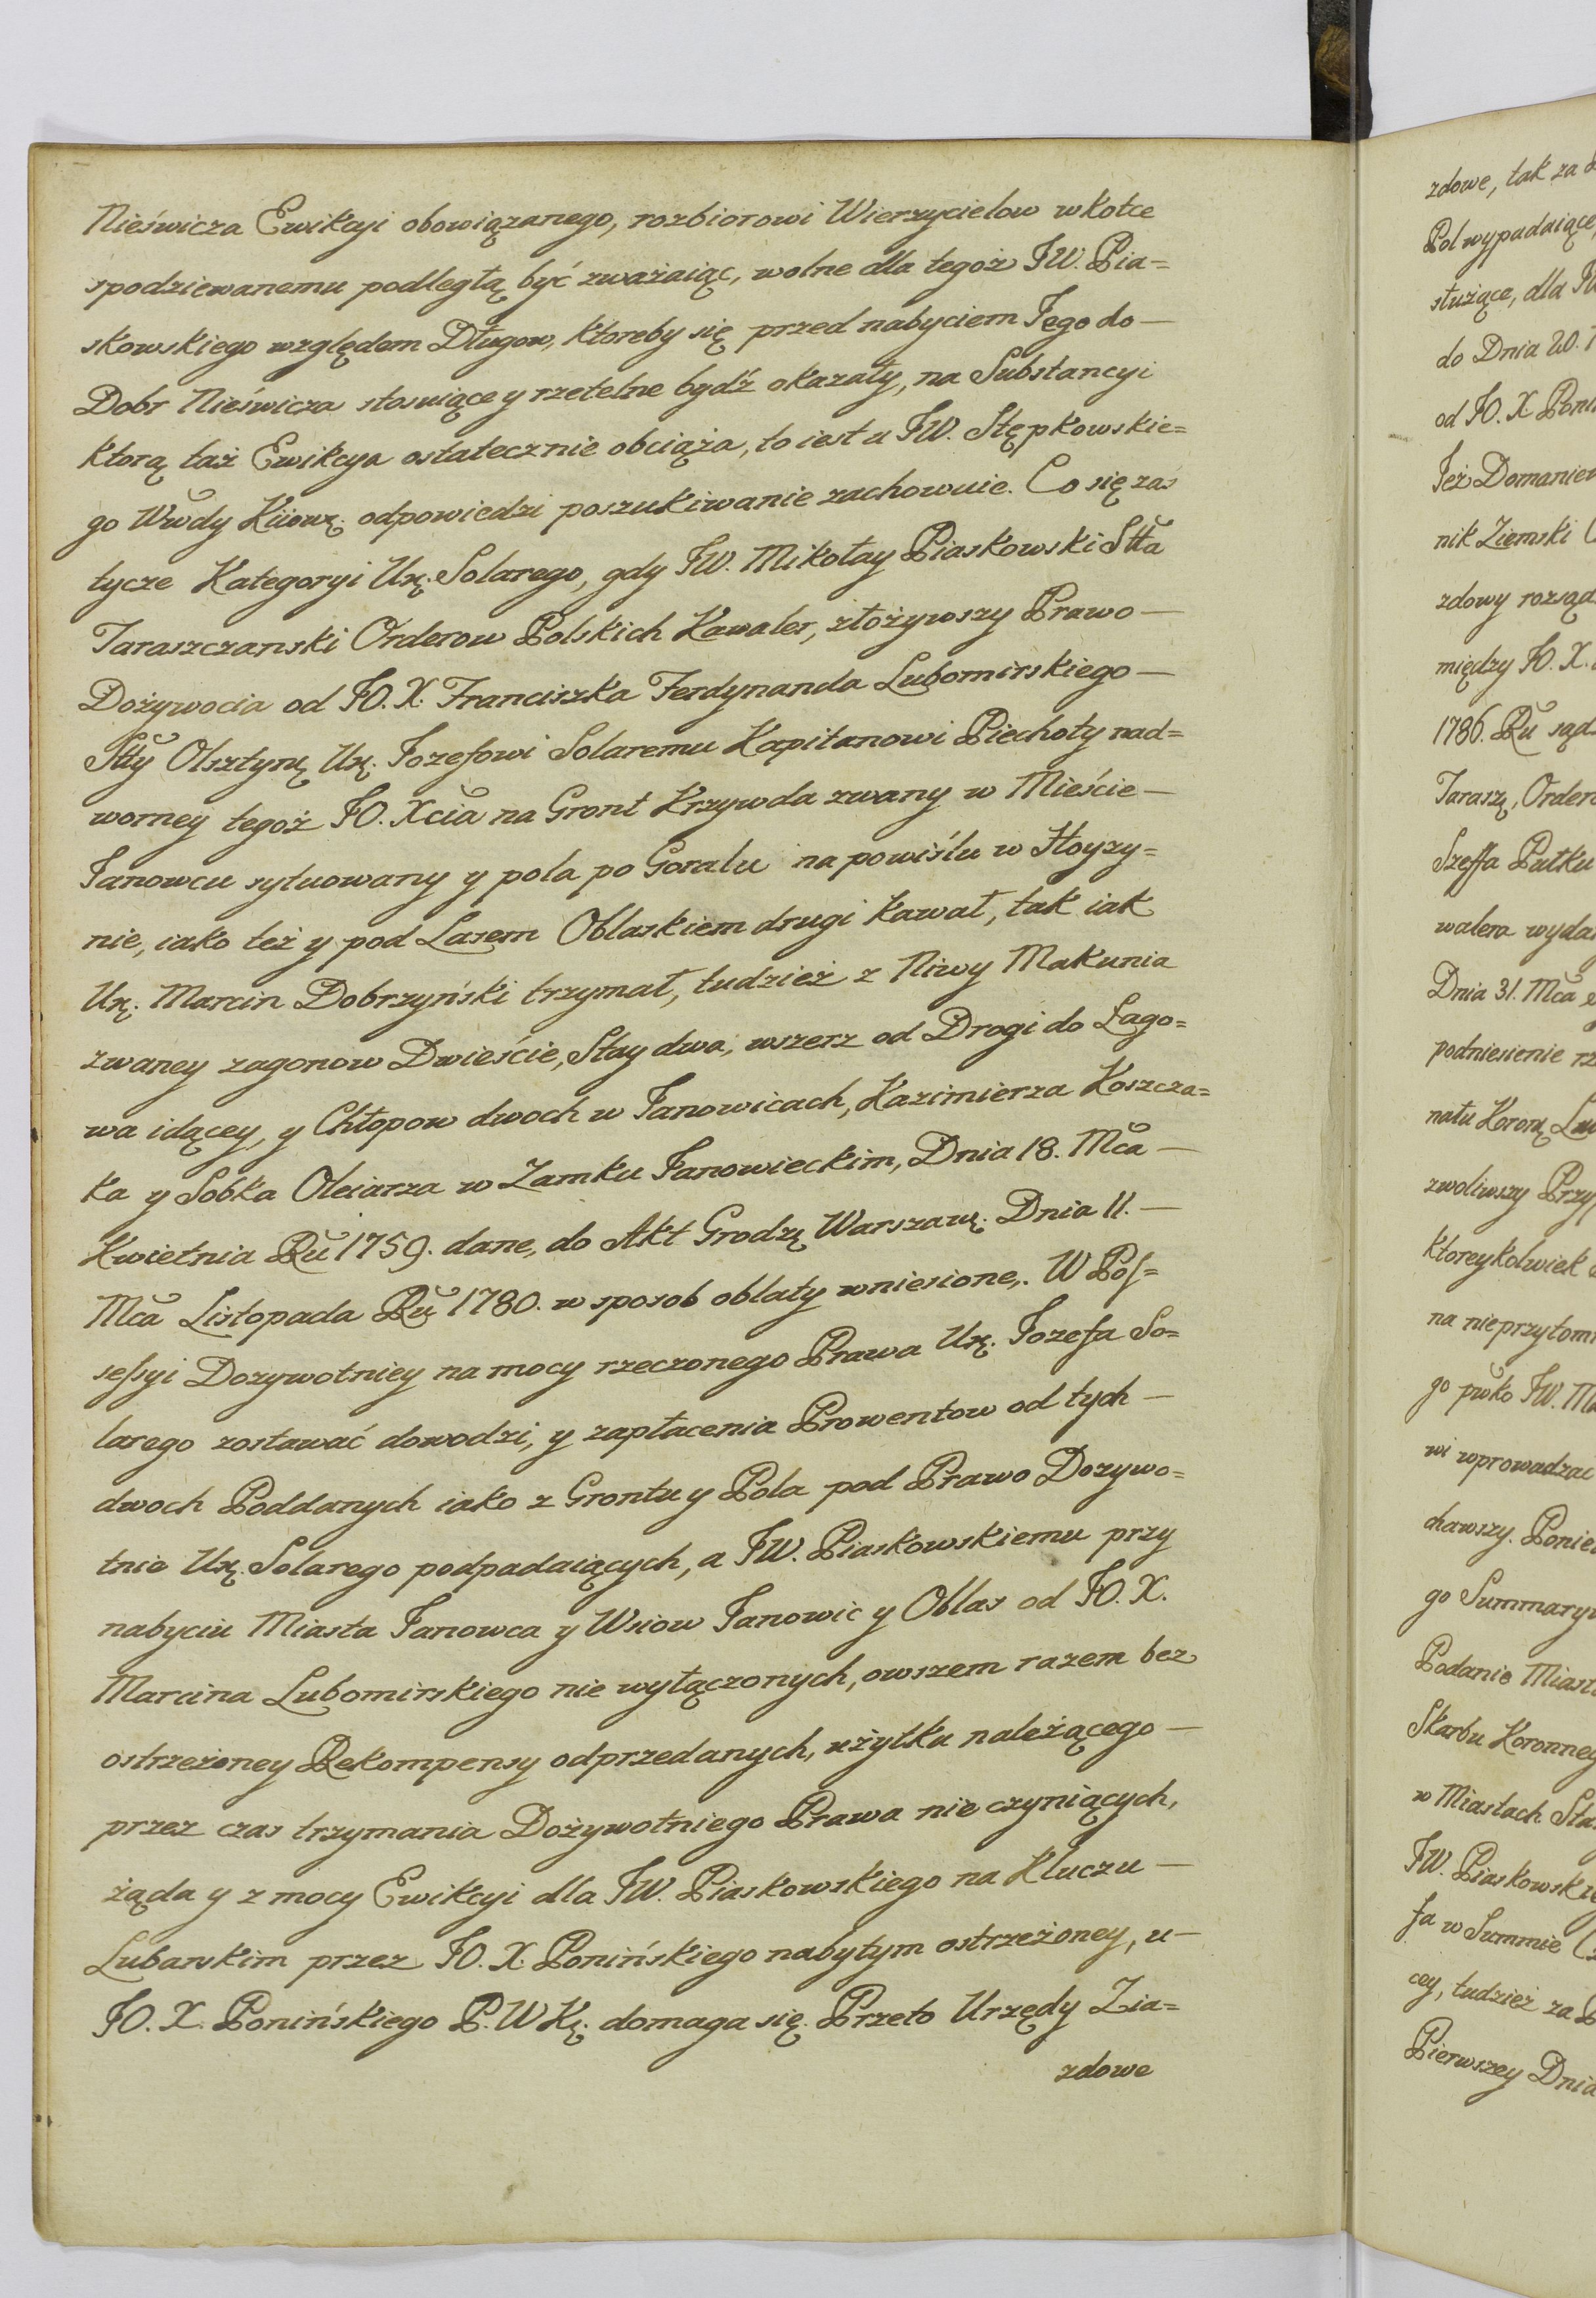 Nieświcza Ewikcyi obowiązanego, rozbiorowi Wierzycielow wkotce
spodziewanemu podległą być zważaiąc, wolne dla tegoż JW. Pia=
skowskiego względem Długow, ktoreby się przed nabyciem Jego do—
Dobr Nieświcza stosuiące y rzetelne bydź okazały, na Substancyi
ktorą taż Ewikcya ostatecznie obciąża, to iest u JW. Stępkowskie=
go Wwdy Kiiowę. odpowiedzi poszukiwanie zachowuie. Co się zaś
tycze Kategoryi Urę. Solarego, gdy JW. Mikołay Piaskowski Stta
Taraszczanski Orderow Polskich Kawaler, złożywszy Prawo—
Dożywocia od JO. X. Franciszka Ferdynanda Lubomirskiego—
Stty Olsztynę Urę. Jozefowi Solaremu Kapitanowi Piechoty nad=
worney tegoż JO. Xcia na Gront Krzywda zwany w Mieście—
Janowcu sytuowany y pola po Goralu na powiślu w Hoyzy=
nie, iako też y pod Lasem Oblaskiem drugi kawał, tak iak
Urę. Marcin Dobrzyński trzymał, tudzież z Niwy Makunia
zwaney zagonow Dwieście, Stay dwa, wszerz od Drogi do Łago=
wa idącey, y Chłopow dwoch w Janowicach, Kazimierza Koszcza=
ka y Sobka Oleiarza w Zamku Janowieckim, Dnia 18. Mca—
Kwietnia Ru 1759. dane, do Akt Grodzę Warszawę. Dnia 11.—
Mca Listopada Ru 1780. w sposob oblaty wniesione,. W Pos=
sessyi Dozywotniey na mocy rzeczonego Prawa Urę. Jozefa So=
larego zostawać dowodzi, y zapłacenia Prowentow od tych—
dwoch Poddanych iako z Grontu y Pola pod Prawo Dozywo=
tnie Urę. Solarego podpadaiących, a JW. Piaskowskiemu przy
nabyciu Miasta Janowca y Wsiow Janowic y Oblas od JO. X.
Marcina Lubomirskiego nie wyłączonych, owszem razem bez
ostrzeżoney Rekompensy odprzedanych, użytku należącego—
przez czas trzymania Dożywotniego Prawa nie czyniących,
żąda y z mocy Ewikcyi dla JW. Piaskowskiego na Kluczu—
Lubarskim przez JO. X. Ponińskiego nabytym ostrzeżoney, u—
JO. X. Ponińskiego P. W Kę. domaga się. Przeto Urzędy Zia=
zdowe
zdowe, tak za
Pol wypadaiące,
służące, dla
do Dnia 20.
od JO. X. Poni
Jeż Domaniew
nik Ziemski
zdowy rozsąd
między JO. X.
1786. Ru sąd
Taraszę, Order
Szeffa Pułku
walera wyda
Dnia 31. Mca
podniesienie
natu Koronę
zwoliwszy Przy
ktoreykolwiek
na nieprzytom
go pwko JW. M
wi wprowadzac
chawszy. Ponie
go Summary
Podanie Miast
Skarbu Koronne
w Miastach
JW. Piaskowski
fa w Summie
cey, tudzież za
Pierwszey Dnia